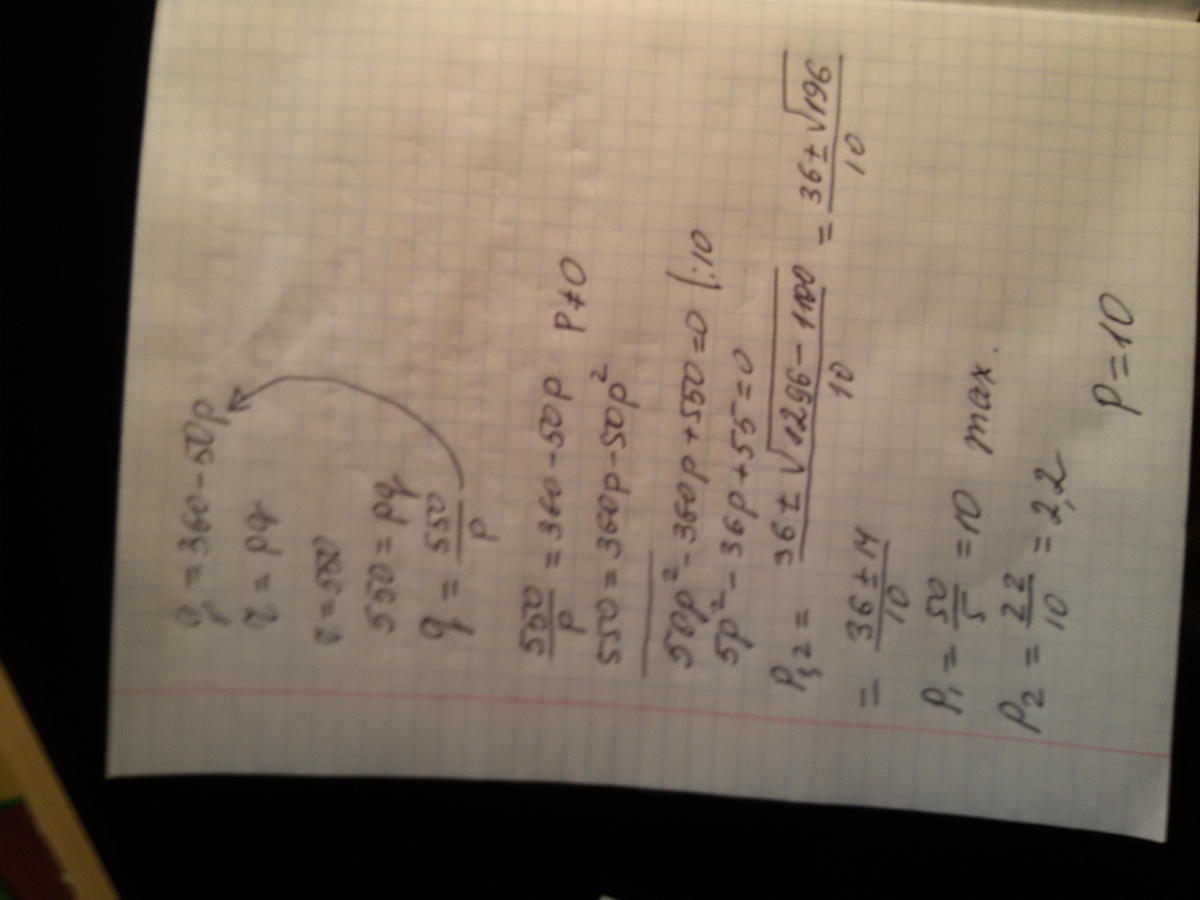 q = 360 - 50p
r = pq
r = 550
550 = pq
q = 550/p
550/p = 360 - 50p p ≠ 0
550 = 360p - 50p²
50p² - 360p + 550 = 0 |:10
5p² - 36p + 55 = 0
P₁,₂ = (36 ± √(1296 - 1100))/10 = (36 ± √196)/10
= (36 ± 14)/10
P₁ = 50/5 = 10 max.
P₂ = 22/10 = 2,2
P = 10